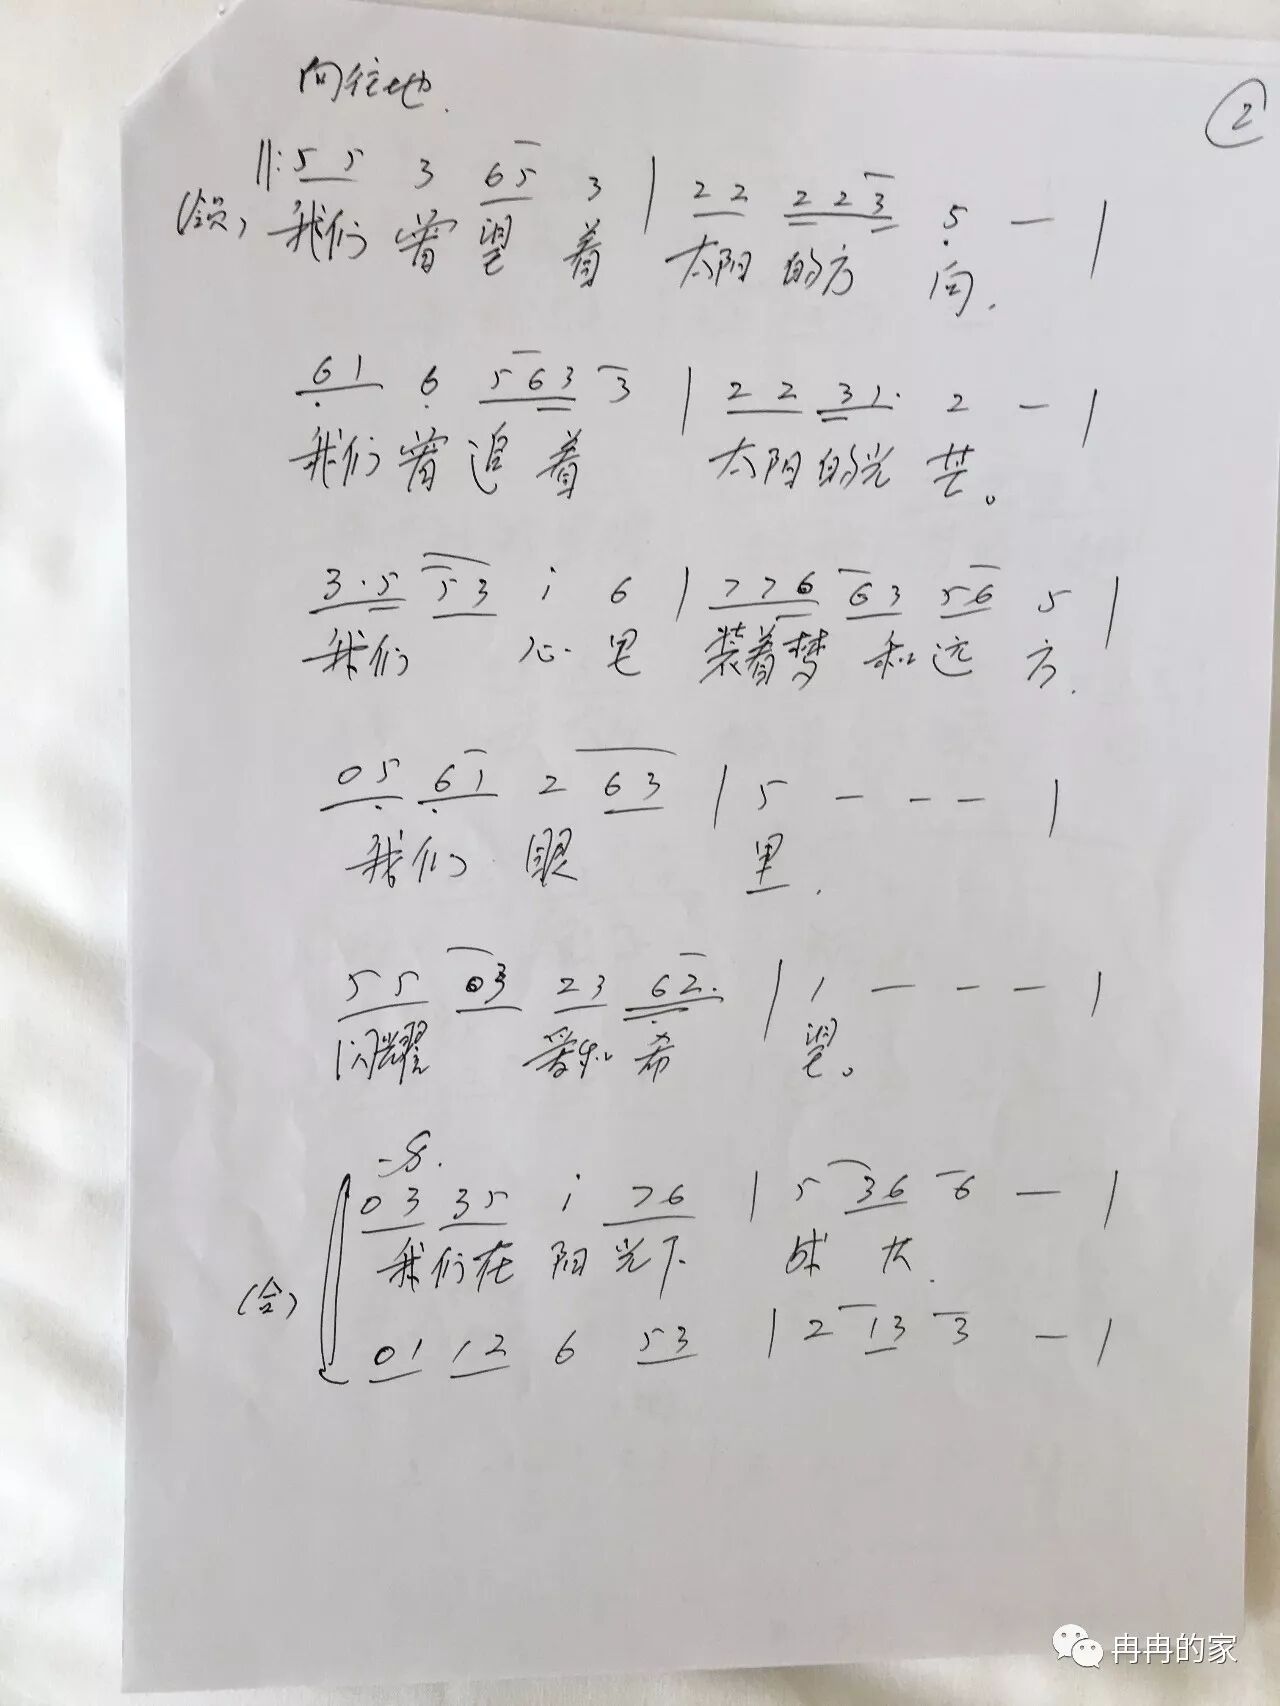 向往地.
②
‖: 5 5 3 6 5 3 | 2 2 2 2 3 5 — |
(领) 我们 曾 望 着 太阳 的方 向.
6 1 6 5 6 3 3 | 2 2 3 1. 2 — |
我们 曾 追 着 太阳 的光 芒。
3. 5 5 3 i 6 | 7 7 6 6 3 5 6 5 |
我们 心 里 装着梦 和远 方.
0 5 6 1 2 6 3 | 5 — — — |
我们 眼 里.
5 5 0 3 2 3 6 2. | 1 — — — |
闪耀 爱和 希 望。
0 3 3 5 i 7 6 | 5 3 6 6 — |
我们在 阳 光下 成 长.
(合)
0 1 1 2 6 5 3 | 2 1 3 3 — |
冉冉的家